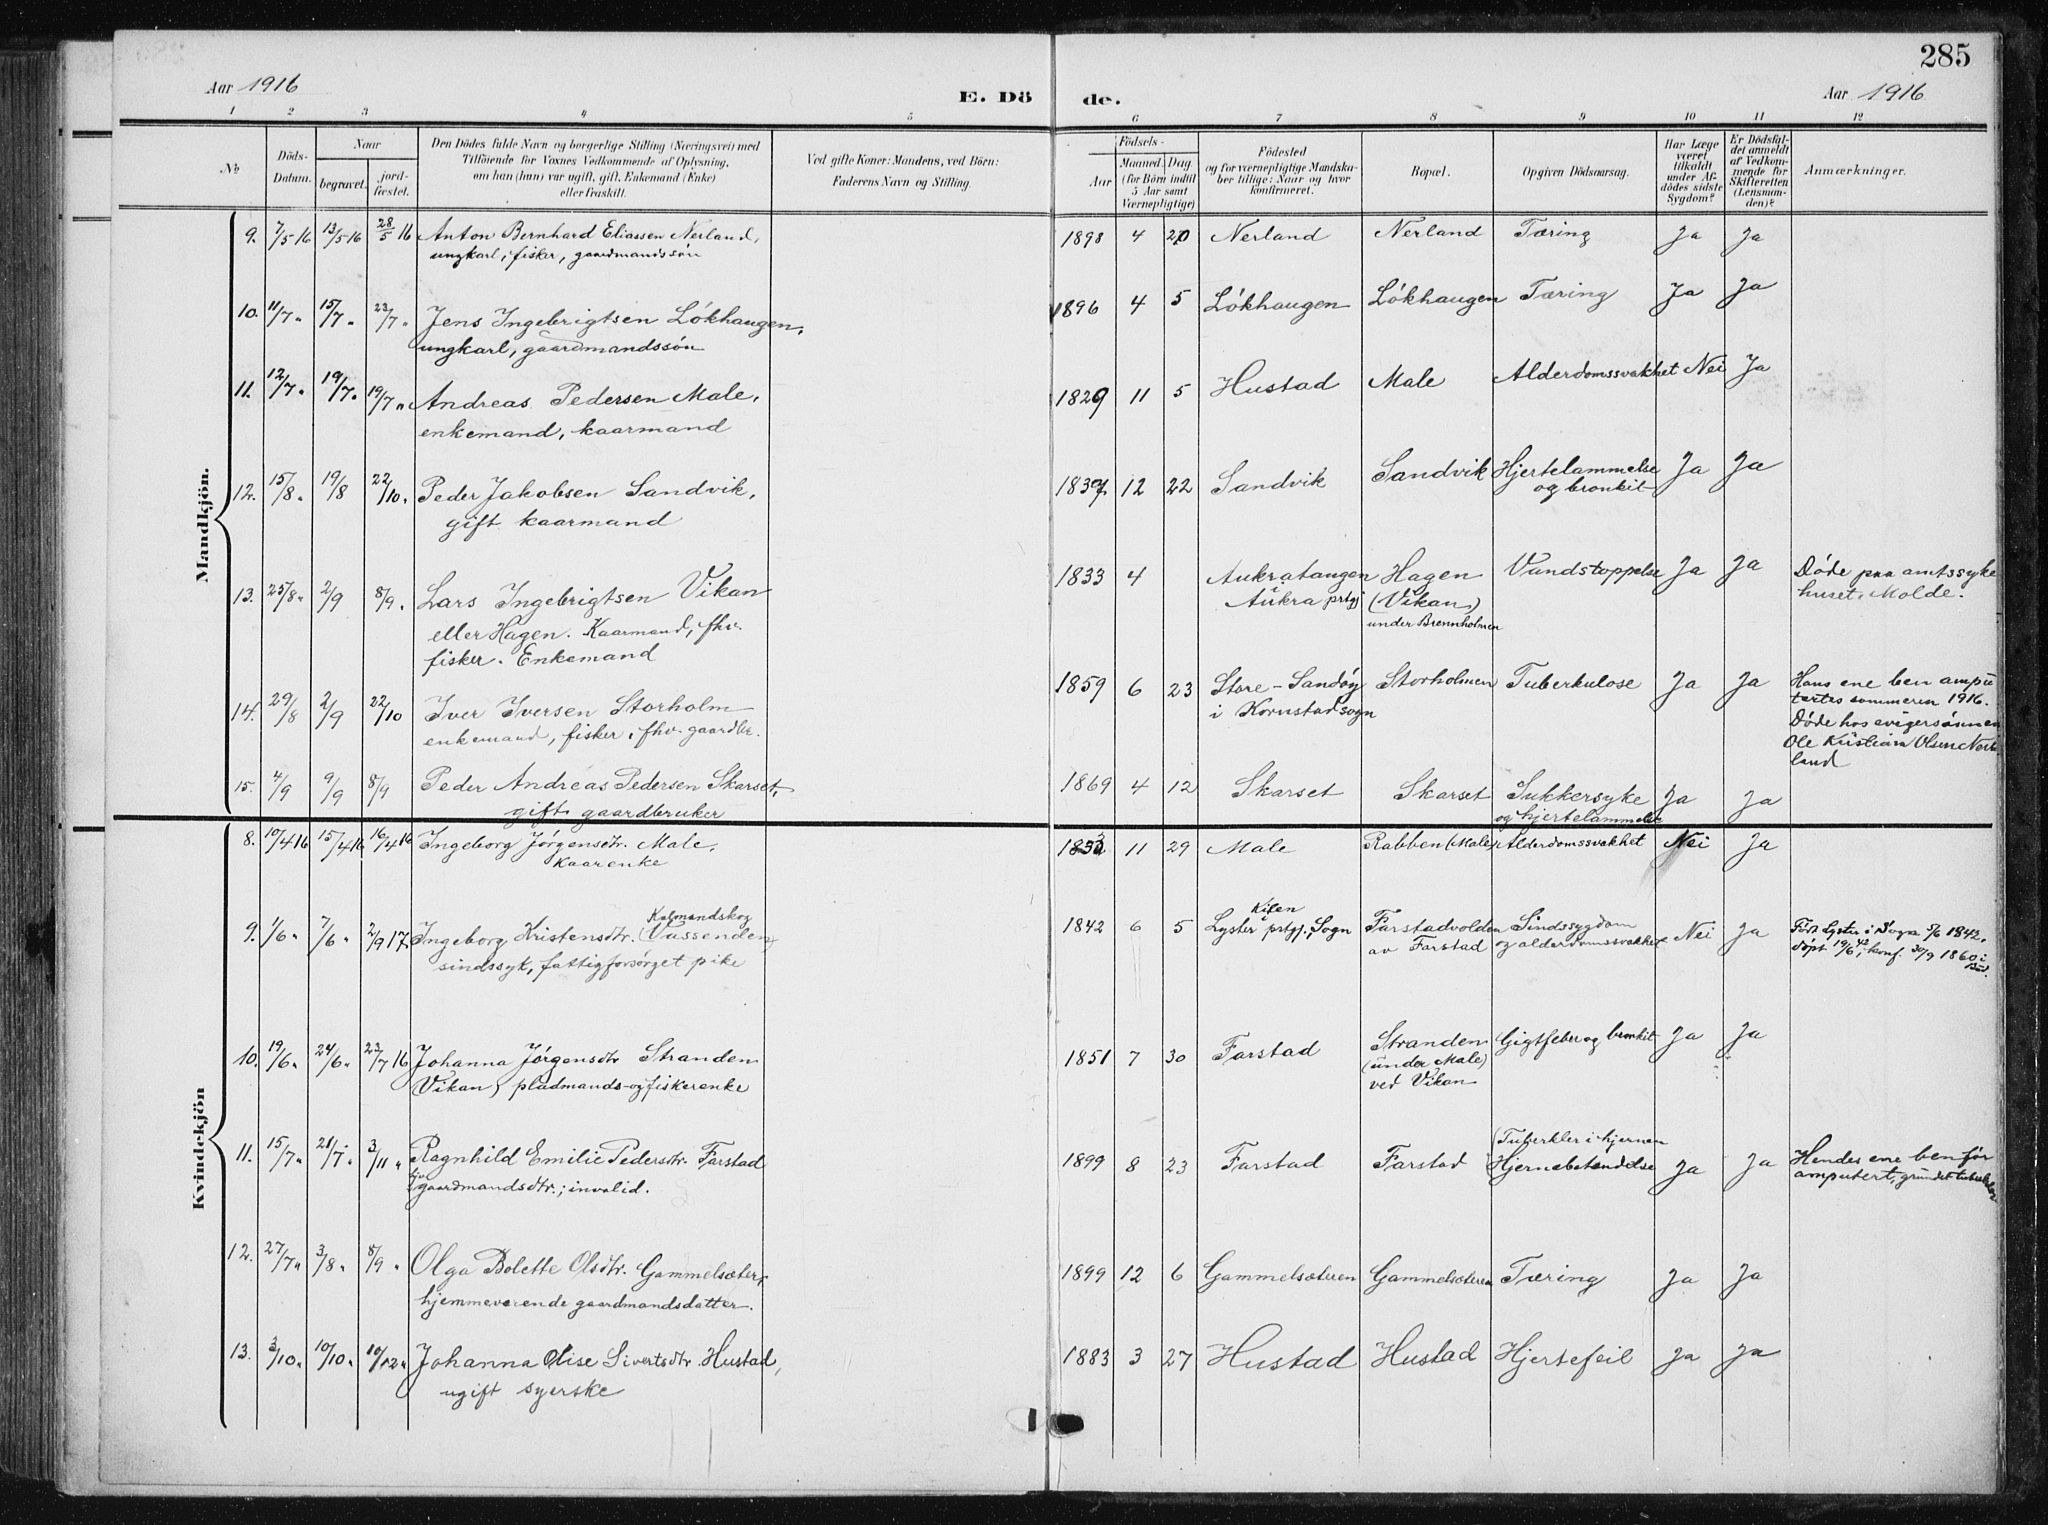 285
Aar 1916
E. Dö de.
Aar 1916
1 2 3 4 5 6 7 8 9 10 11 12
No
Döds-Datum.
Naar
begravet.
jordfæstet.
Den Dödes fulde Navn og borgerlige Stilling (Næringsvei) med
Tilföiende for Voxnes Vedkommende af Oplysning,
om han (hun) var ugift, gift, Enkemand (Enke)
eller fraskilt.
Ved gifte Koner: Mandens, ved Börn:
Faderens Navn og Stilling.
Födsels-
Aar
Maaned. Dag.
(for Börn indtil
5 Aar samt
Værnepligtige)
Födested
og for værnepligtige Mandska-
ber tillige: Naar og hvor
konfirmeret.
Bopæl.
Opgiven Dödsaarsag.
Har Læge
været
tilkaldt
under Af-
dödes sidste
Sygdom?
Er Dödsfal-
det anmeldt
af Vedkom-
mende for
Skifteretten
(Lensman-
den)?
Anmærkninger.
Mandkjön.
9. 7/5 16 13/5 16 28/5 16 Anton Bernhard Eliassen Nerland, 1898 4 20 Nerland Nerland Tæring Ja Ja
ungkarl, fisker, gaardmandssøn
10. 11/7 " 15/7 " 23/7 " Jens Ingebrigtsen Lökhaugen, 1896 4 5 Lökhaugen Lökhaugen Tæring Ja Ja
ungkarl, gaardmandssön
11. 12/7 " 19/7 " 19/7 " Andreas Pedersen Male, 1829 11 5 Hustad Male Alderdomssvakhet Nei Ja
enkemand, kaarmand
12. 15/8 " 19/8 22/10 " Peder Jakobsen Sandvik, 1837 12 22 Sandvik Sandvik Hjertelammelse Ja Ja
og bronkit
gift kaarmand
13. 25/8 " 2/9 8/9 " Lars Ingebrigtsen Vikan 1833 4 Aukratangen Hagen Vandstoppelse Ja Ja Döde paa amtssyke
Aukra prtgj (Vikan) huset, Molde.
eller Hagen. Kaarmand, fhv. under Brennholmen
fisker. Enkemand
14. 29/8 2/9 22/10 Iver Iversen Storholm 1859 6 23 Store-Sandöy Storholmen Tuberkulose Ja Ja Hans ene ben ampu
i Kornstad sogn tertes sommeren 1916.
enkemand, fisker, fhv. gaardbr. Döde hos svigersönnen
Ole Kristian Olsen Ner
land
15. 4/9 9/9 8/9 Peder Andreas Pedersen Skarset, 1869 4 12 Skarset Skarset Sukkersyke Ja Ja
gift gaardbruker og hjertelammelse
Kvindekjön
8. 10/4 16 15/4 16 16/4 16 Ingeborg Jørgensdtr. Male, 11 29 Male Rabben (Male) Alderdomssvakhet Nei Ja
kaarenke
9. 1/6 " 7/6 " 2/9 17. Ingeborg Kristensdtr. (Vassenden) 1842 6 5 Lyster prtgj., Sogn Farstadvolden Sindssygdom Nei Ja Født Lyster i Sogn 5/6 1842,
sindssyk, fattigforsørget pike av Farstad og alderdomssvakhet døpt 19/6 42, konf. 30/9 1860 i
Bud.
10. 19/6 " 24/6 " 23/7 16 Johanna Jørgensdtr Stranden 1851 7 30 Farstad Stranden Gigtfeber og bronkit Ja Ja
(under Male)
Vikan, pladmands- og fiskerenke ved Vikan
11. 15/7 " 21/7 " 3/11 " Ragnhild Emilie Pedersdtr. Farstad 1899 8 23 Farstad Farstad (Tuberkler i hjernen Ja Ja Hendes ene ben før
Hjernebetændelse amputert, grundet tuberkler
gaardmandsdtr.; invalid.
12. 27/7 " 3/8 " 8/9 " Olga Bolette Olsdtr. Gammelsæter, 1899 12 6 Gammelsæteren Gammelsæteren Tæring Ja Ja
hjemmeværende gaardmandsdatter.
13. 3/10 " 10/10 " 10/12 " Johanna Olise Sivertsdtr Hustad, 1883 3 27 Hustad Hustad Hjertefeil Ja Ja
ugift syerske